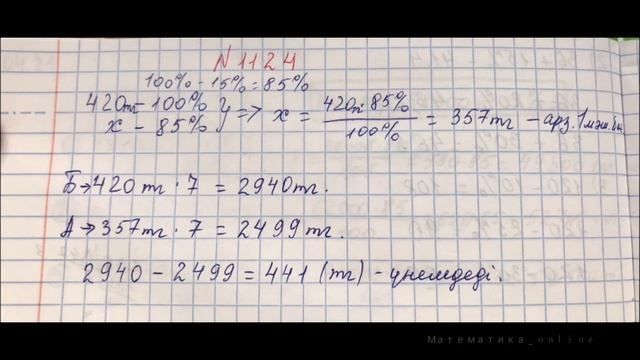 N1124
100% - 15% = 85%
420тг - 100%
x - 85% } => x = 420тг · 85% / 100% = 357тг - арз. 1 мәш. бағ
Б → 420 тг · 7 = 2940 тг.
А → 357 тг · 7 = 2499 тг.
2940 - 2499 = 441 (тг) - үнемдеді.
Математика_online